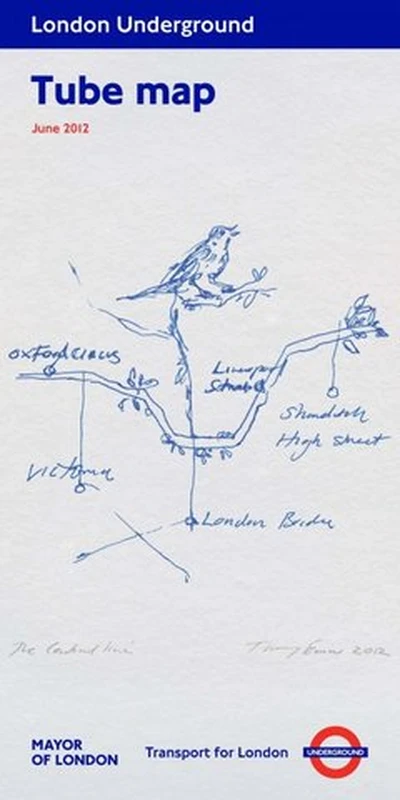 London Underground
Tube map
June 2012
oxford circus
Liverpool
Street
Shoreditch
High Street
Victoria
London Bridge
The Central line
Tracey Emin 2012
MAYOR
OF LONDON
Transport for London
UNDERGROUND